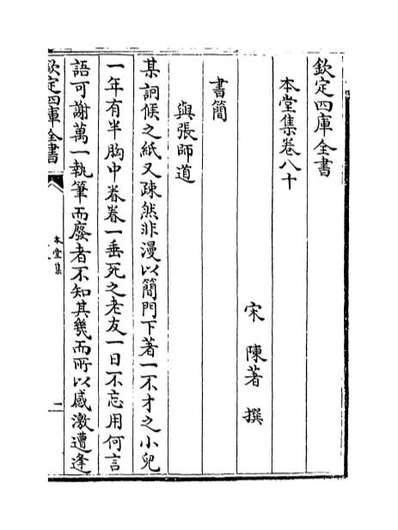 欽定四庫全書
本堂集卷八十
宋 陳著 撰
書簡
與張師道
某詞候之紙又疎然非漫以簡門下著一不才之小兒
一年有半胸中眷眷一垂死之老友一日不忘用何言
語可謝萬一執筆而廢者不知其幾而所以感激遭逢
欽定四庫全書
本堂集
一